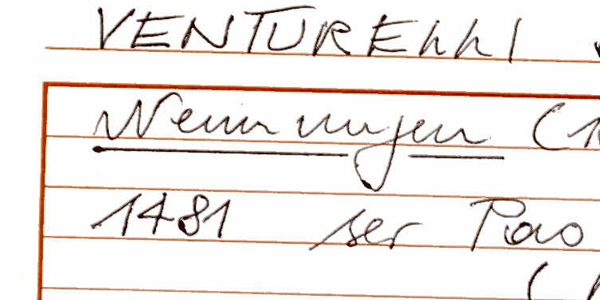 VENTURELLI
Nennungen (1
1481 ser Pao
(